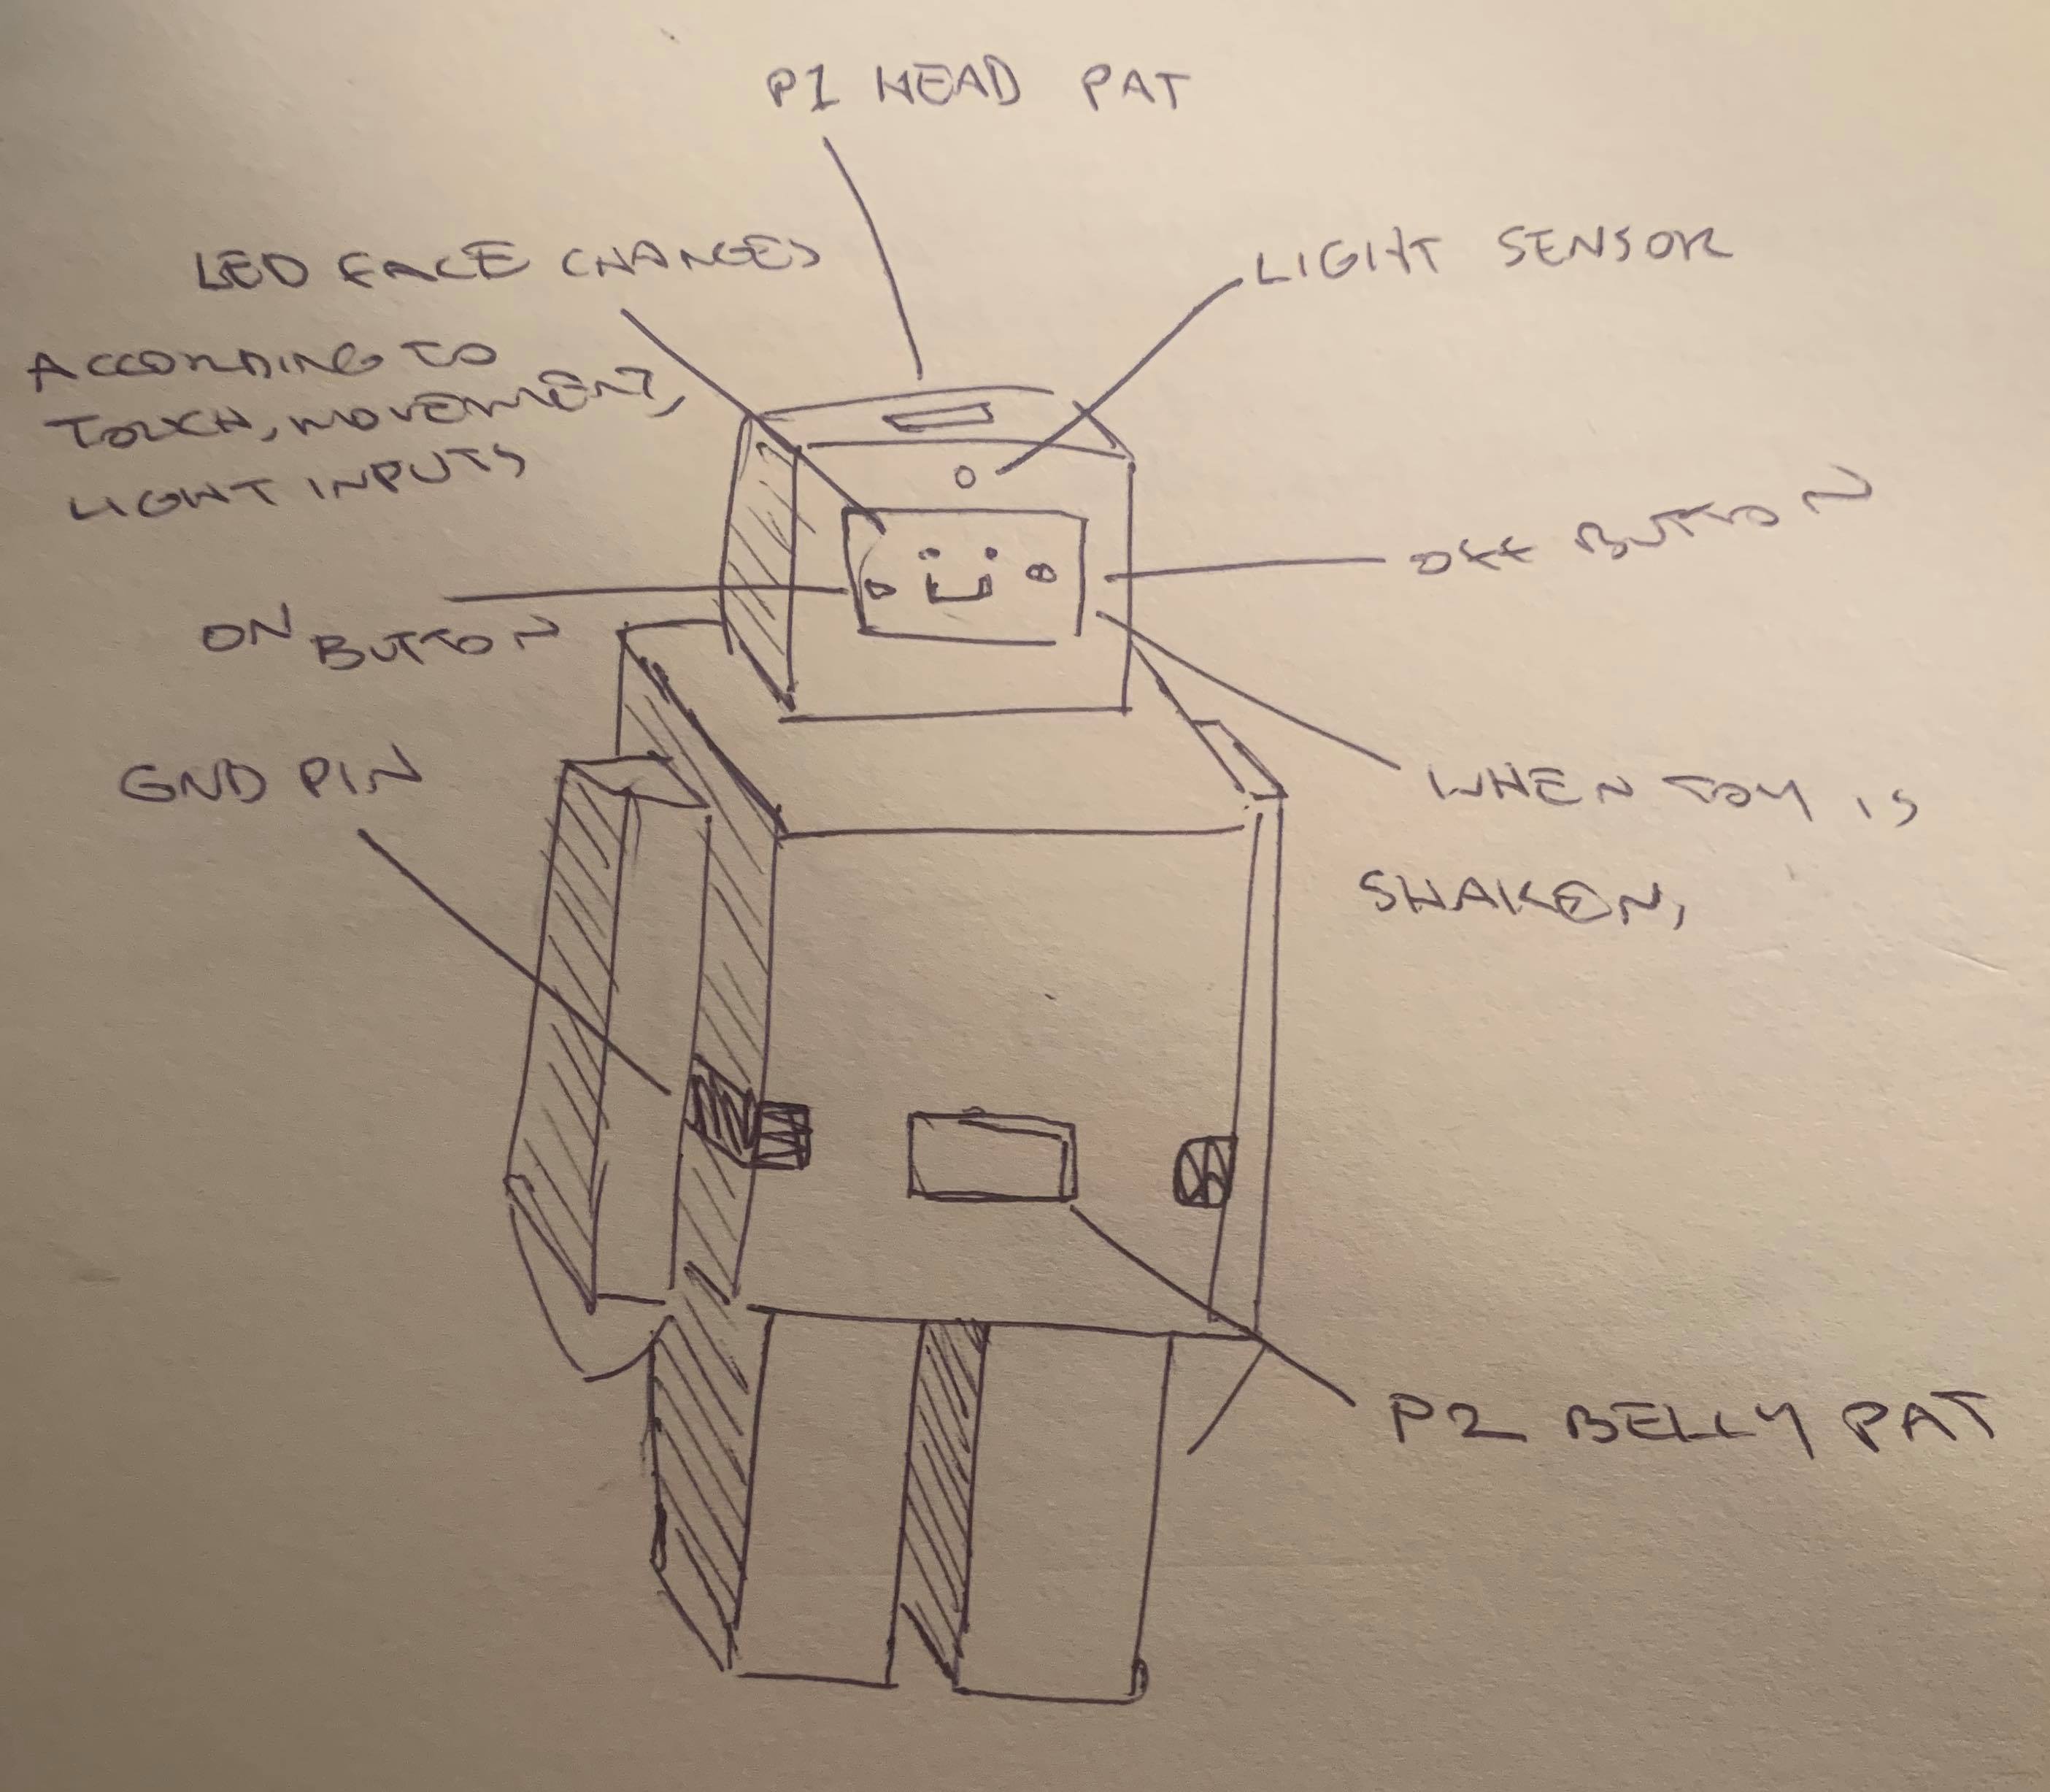 P1 HEAD PAT
LED FACE CHANGES
ACCORDING TO
TOUCH, MOVEMENT,
LIGHT INPUTS
LIGHT SENSOR
OFF BUTTON
ON BUTTON
GND PIN
WHEN TOY IS
SHAKEN,
P2 BELLY PAT